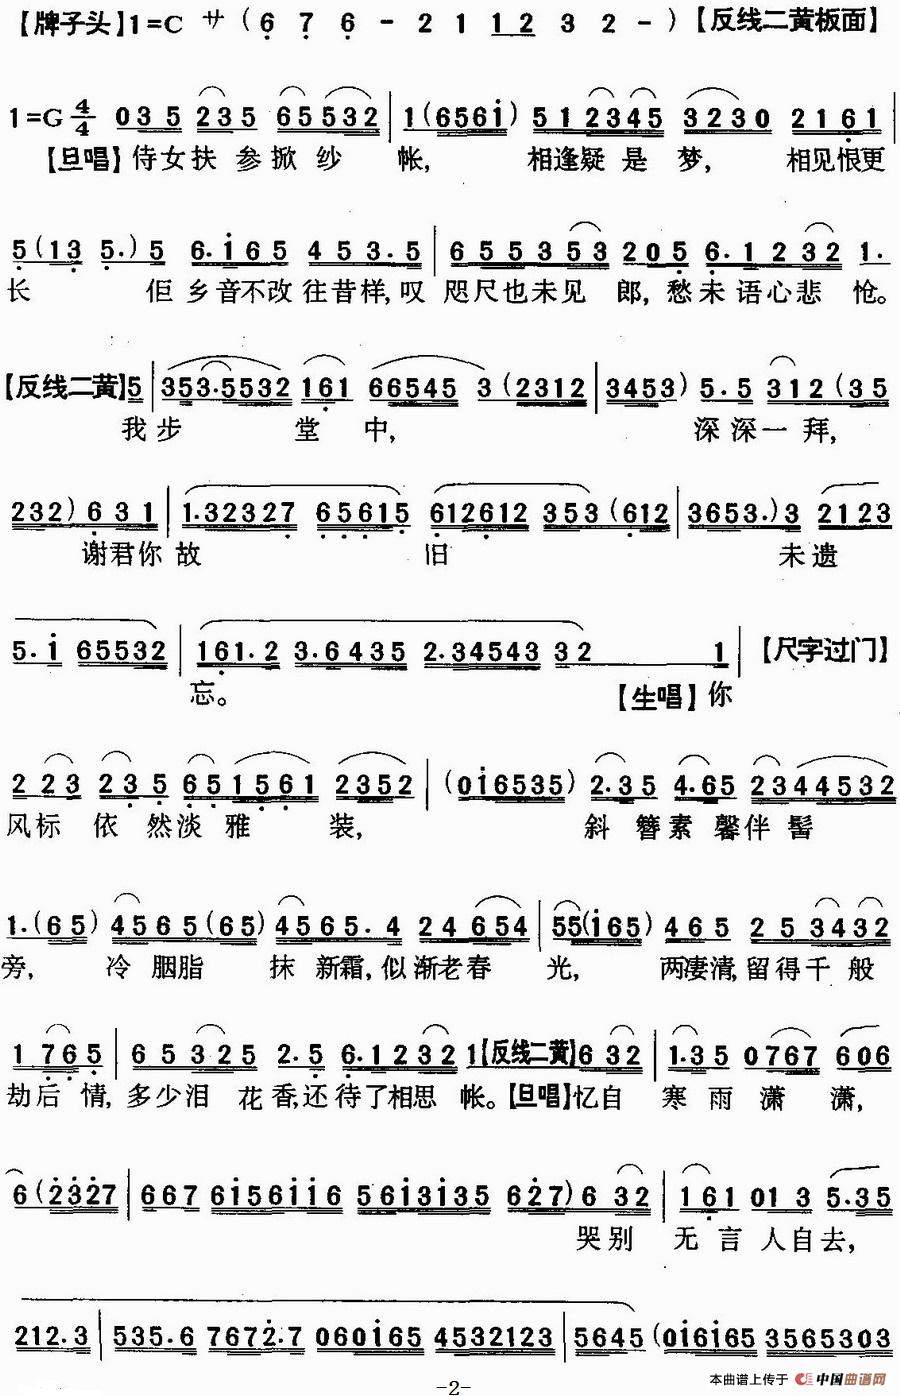 【牌子头】1=C サ ( 6 7 6 - 2 1 1 2 3 2 - ) 【反线二黄板面】
1=G 4/4 0 3 5 2 3 5 6 5 5 3 2 | 1 ( 6 5 6 i ) 5 1 2 3 4 5 3 2 3 0 2 1 6 1 |
【旦唱】侍女扶 参掀 纱 帐, 相逢疑 是 梦, 相见恨更
5 ( 1 3 5 . ) 5 6 . i 6 5 4 5 3 . 5 | 6 5 5 3 5 5 3 2 0 5 6 . 1 2 3 2 1 .
长 佢 乡音不改 往昔样, 叹 咫尺也未见 郎, 愁未 语心悲 怆。
【反线二黄】5 | 3 5 3 . 5 5 3 2 1 6 1 6 6 5 4 5 3 ( 2 3 1 2 | 3 4 5 3 ) 5 . 5 3 1 2 ( 3 5
我步 堂 中, 深 深一 拜,
2 3 2 ) 6 3 1 | 1 . 3 2 3 2 7 6 5 6 1 5 6 1 2 6 1 2 3 5 3 ( 6 1 2 | 3 6 5 3 . ) 3 2 1 2 3
谢君你 故 旧 未 遗
5 . i 6 5 5 3 2 | 1 6 1 . 2 3 . 6 4 3 5 2 . 3 4 5 4 3 3 2 1 | 【尺字过门】
忘。 【生唱】你
2 2 3 2 3 5 6 5 1 5 6 1 2 3 5 2 | ( 0 i 6 5 3 5 ) 2 . 3 5 4 . 6 5 2 3 4 4 5 3 2
风标 依 然淡 雅 装, 斜 簪素 馨伴 髻
1 . ( 6 5 ) 4 5 6 5 ( 6 5 ) 4 5 6 5 . 4 2 4 6 5 4 | 5 5 ( i 6 5 ) 4 6 5 2 5 3 4 3 2
旁, 冷 胭脂 抹 新霜, 似渐老春 光, 两凄清, 留得千 般
1 7 6 5 | 6 5 3 2 5 2 . 5 6 . 1 2 3 2 1【反线二黄】6 3 2 | 1 . 3 5 0 7 6 7 6 0 6
劫后 情, 多少泪 花 香, 还 待了相思 帐。【旦唱】忆自 寒 雨 潇 潇,
6 ( 2 3 2 7 | 6 6 7 6 i 5 6 i i 6 5 6 i 3 i 3 5 6 2 7 ) 6 3 2 | 1 6 1 0 1 3 5 . 3 5
哭别 无 言 人自去,
2 1 2 . 3 | 5 3 5 . 6 7 6 7 2 . 7 0 6 0 i 6 5 4 5 3 2 1 2 3 | 5 6 4 5 ( 0 i 6 i 6 5 3 5 6 5 3 0 3
-2-
本曲谱上传于 中国曲谱网